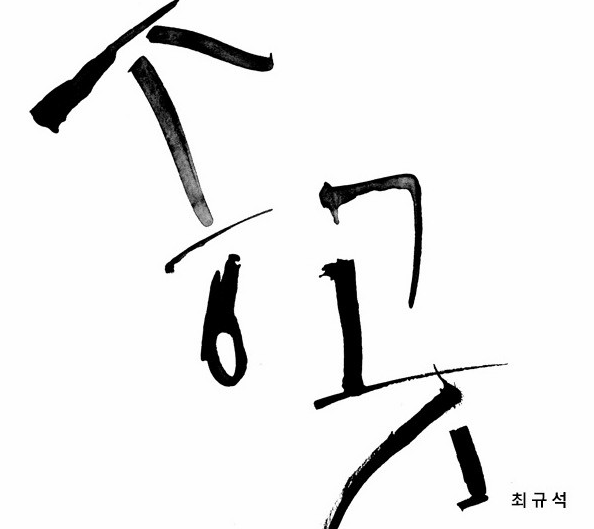 송곳
최규석